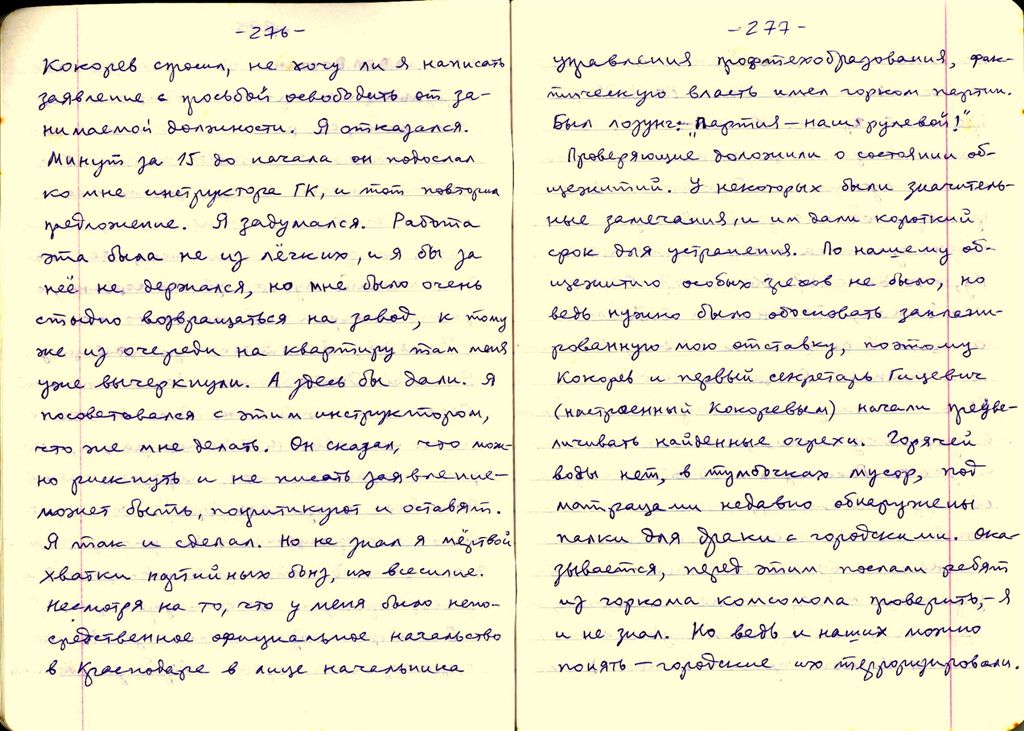 -276-
Кокорев спросил, не хочу ли я написать
заявление с просьбой освободить от за-
нимаемой должности. Я отказался.
Минут за 15 до начала он подослал
ко мне инструктора ГК, и тот повторил
предложение. Я задумался. Работа
эта была не из лёгких, и я бы за
неё не держался, но мне было очень
стыдно возвращаться на завод, к тому
же из очереди на квартиру там меня
уже вычеркнули. А здесь бы дали. Я
посоветовался с этим инструктором,
что же мне делать. Он сказал, что мож-
но рискнуть и не писать заявление-
может быть, покритикуют и оставят.
Я так и сделал. Но не знал я мёртвой
хватки партийных бонз, их всесилие.
Несмотря на то, что у меня было непо-
средственное официальное начальство
в Краснодаре в лице начальника
-277-
управления профтехобразования, фак-
тическую власть имел горком партии.
Был лозунг: "Партия — наш рулевой!"
Проверяющие доложили о состоянии об-
щежитий. У некоторых были значитель-
ные замечания, и им дали короткий
срок для устранения. По нашему об-
щежитию особых грехов не было, но
ведь нужно было обосновать заплани-
рованную мою отставку, поэтому
Кокорев и первый секретарь Гицевич
(настроенный Кокоревым) начали преуве-
личивать найденные огрехи. Горячей
воды нет, в тумбочках мусор, под
матрацами недавно обнаружены
палки для драки с городскими. Ока-
зывается, перед этим послали ребят
из горкома комсомола проверить,- я
и не знал. Но ведь и наших можно
понять — городские их терроризировали.